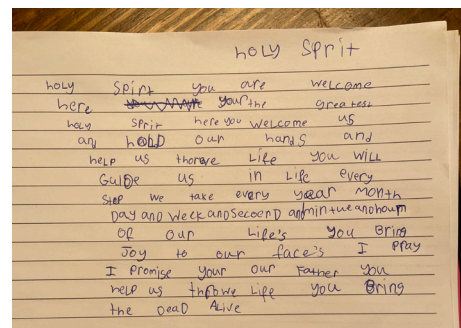 holy Sprit
holy Spirt you are welcome
here your the greatest
holy Sprit here you welcome us
and hold our hands and
help us thorowe Life you will
Guide us in Life every
Step we take every year month
Day and week and secoerD and mintue and houm
of our Life's you Bring
Joy to our face's I pray
I Promise your our Father you
help us throwe Life you Bring
the DeaD Alive